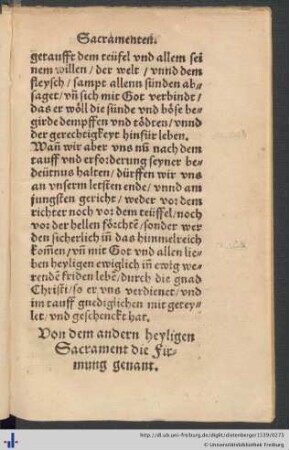 Sacramenten.
getaufft dem teüfel vnd allem sei
nem willen / der welt / vnnd dem
fleysch / sampt allenn sünden ab⸗
saget / vñ sich mit Got verbindt /
das er wöll die sünde vnd böse be⸗
girde dempffen vnd tödten / vnnd
der gerechtigkeyt hinfür leben.
Wañ wir aber vns nũ nach dem
tauff vnd erforderung seyner be⸗
deütnus halten / dürffen wir vns
an vnserm letsten ende / vnnd am
jungsten gericht / weder vor dem
richter noch vor dem teüffel / noch
vor der hellen förchtẽ / sonder wer
den sicherlich iñ das himmelreich
kom̃en / vñ mit Got vnd allen lie⸗
ben heyligen ewiglich iñ ewig we⸗
rendẽ friden lebẽ / durch die gnad
Christi / so er vns verdienet / vnd
im tauff gnediglichen mit getey⸗
let / vnd geschenckt hat.
Von dem andern heyligen
Sacrament die Fir⸗
mung genant.
http://dl.ub.uni-freiburg.de/diglit/dietenberger1539/0273
© Universitätsbibliothek Freiburg